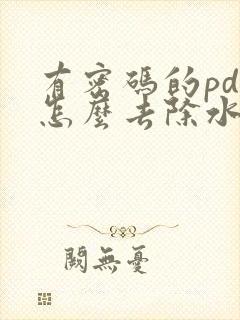 有密碼的pd
怎麼去除水
闕無憂